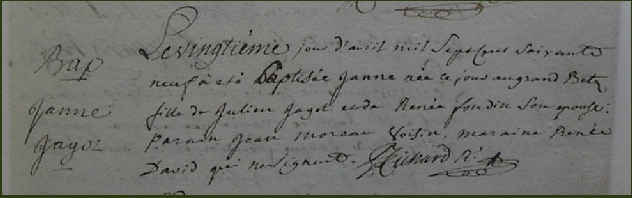 Bap
Janne
Jagot
Le vingtième jour d'avril mil sept cens soixante
neuf a eté Baptisée Janne née ce jour au grand Betz
fille de Julien Jagot et de Renée fondin son epouse.
Parain Jean moreau voisin, maraine Renée
David qui ne signent. Richard